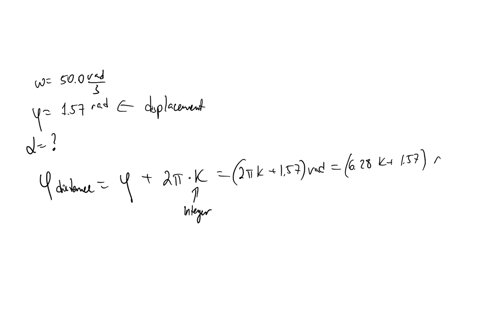 ω = 50.0 rad/s
φ = 1.57 rad ← displacement
α = ?
φ distance = φ + 2π · K = (2π K + 1.57) rad = (6.28 K + 1.57) r
↑
integer